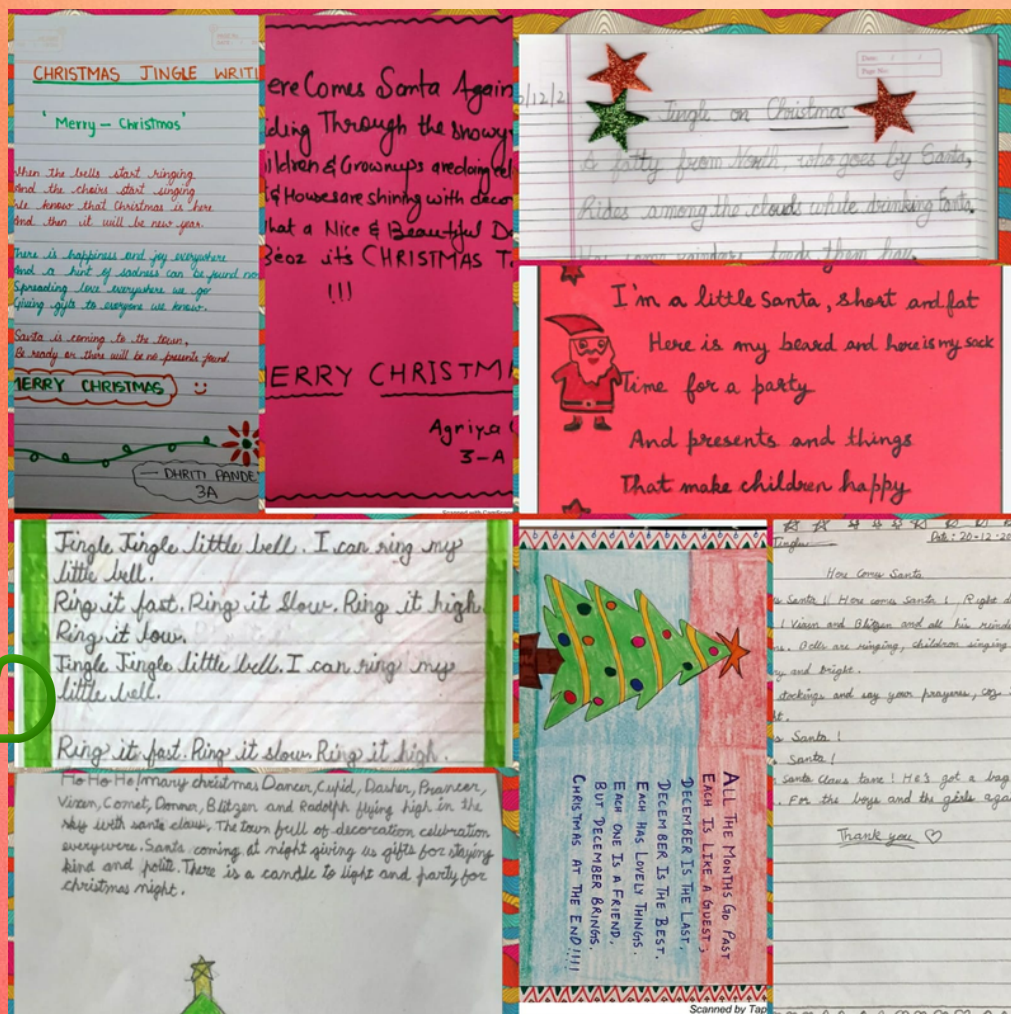 CHRISTMAS JINGLE WRITI
"Merry - Christmas"
When the bells start ringing
And the choirs start singing
We know that Christmas is here
And then it will be new year.
There is happiness and joy everywhere
And a hint of sadness can be found no
Spreading love everywhere we go
Giving gifts to everyone we know.
Santa is coming to the town,
Be ready or there will be no presents found.
MERRY CHRISTMAS
- DHRITI PANDE
3A
ere Comes Santa Again
ding Through the snowy
ildren & Grownups are doing cel
& Houses are shining with deco
hat a Nice & Beautiful D
Bcoz it's CHRISTMAS T
!!!
ERRY CHRISTM
Agriya
3-A
Scanned with CamScan
Date: / /
Page No:
/12/2
Jingle on Christmas
A fatty from North, who goes by Santa,
Rides among the clouds while drinking Fanta.
I'm a little Santa, short and fat
Here is my beard and here is my sack
Time for a party
And presents and things
That make children happy
Jingle Jingle little bell. I can ring my
little bell.
Ring it fast. Ring it Slow. Ring it high.
Ring it low.
Jingle Jingle little bell. I can ring my
little bell.
Ring it fast. Ring it slow. Ring it high.
Ho Ho Ho! Mary christmas Dancer, Cupid, Dasher, Prancer,
Vixen, Comet, Donner, Blitzen and Radolph flying high in the
sky with santa claus. The town full of decoration celebration
everywere. Santa coming at night giving us gifts for staying
kind and polite. There is a candle to light and party for
christmas night.
ALL THE MONTHS GO PAST
EACH IS LIKE A GUEST,
DECEMBER IS THE LAST.
DECEMBER IS THE BEST.
EACH HAS LOVELY THINGS.
EACH ONE IS A FRIEND.
BUT DECEMBER BRINGS.
CHRISTMAS AT THE END!!!!
Scanned by Tap
Jingle
Date: 20-12-20
Here Comes Santa
Santa! Here comes santa! Right d
! Vixen and Blitzen and all his reinde
Bells are ringing, children singing
y and bright.
stockings and say your prayeres,
t.
Santa!
Santa!
Santa Claus lane! He's got a bag
. For the boys and the girls aga
Thank you